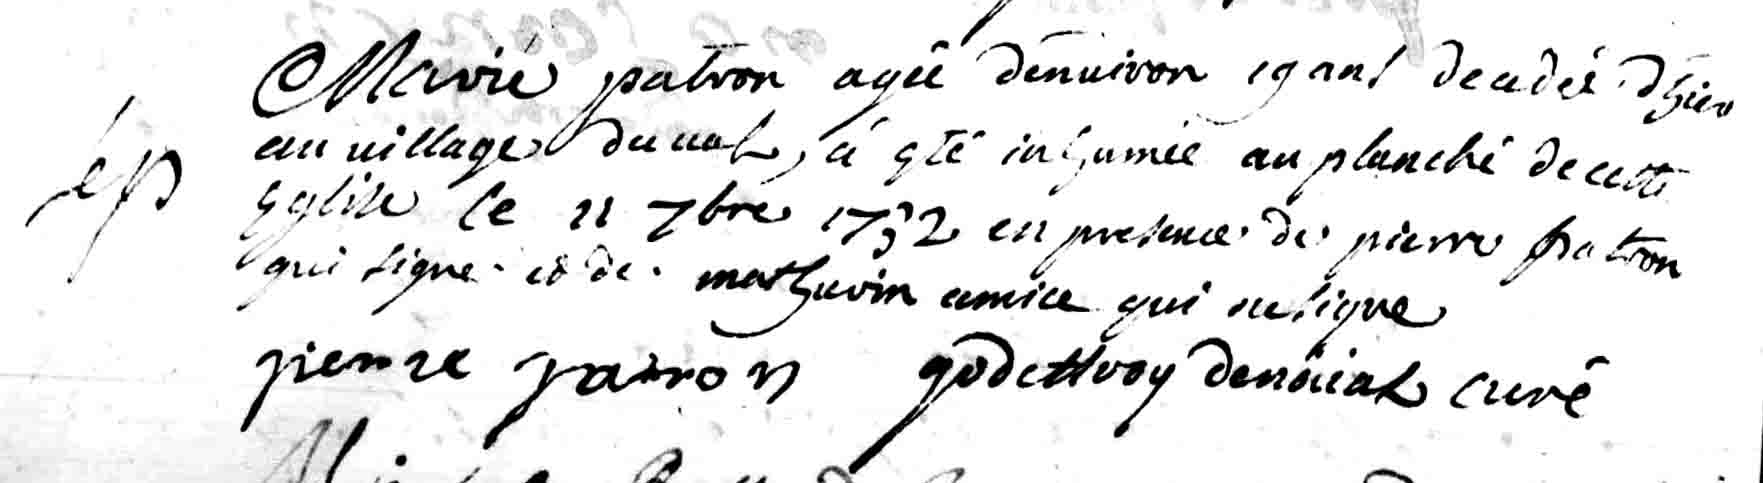 Marie patron agée d'enuiron 19 ans decedée d'hier
au village du ual, á eté inhumée au planché de cette
Eglise le 11 7bre 1732 en presence de pierre patron
qui signe et de mathurin amice qui ne signe
pierre patron godettroy denoüal curé